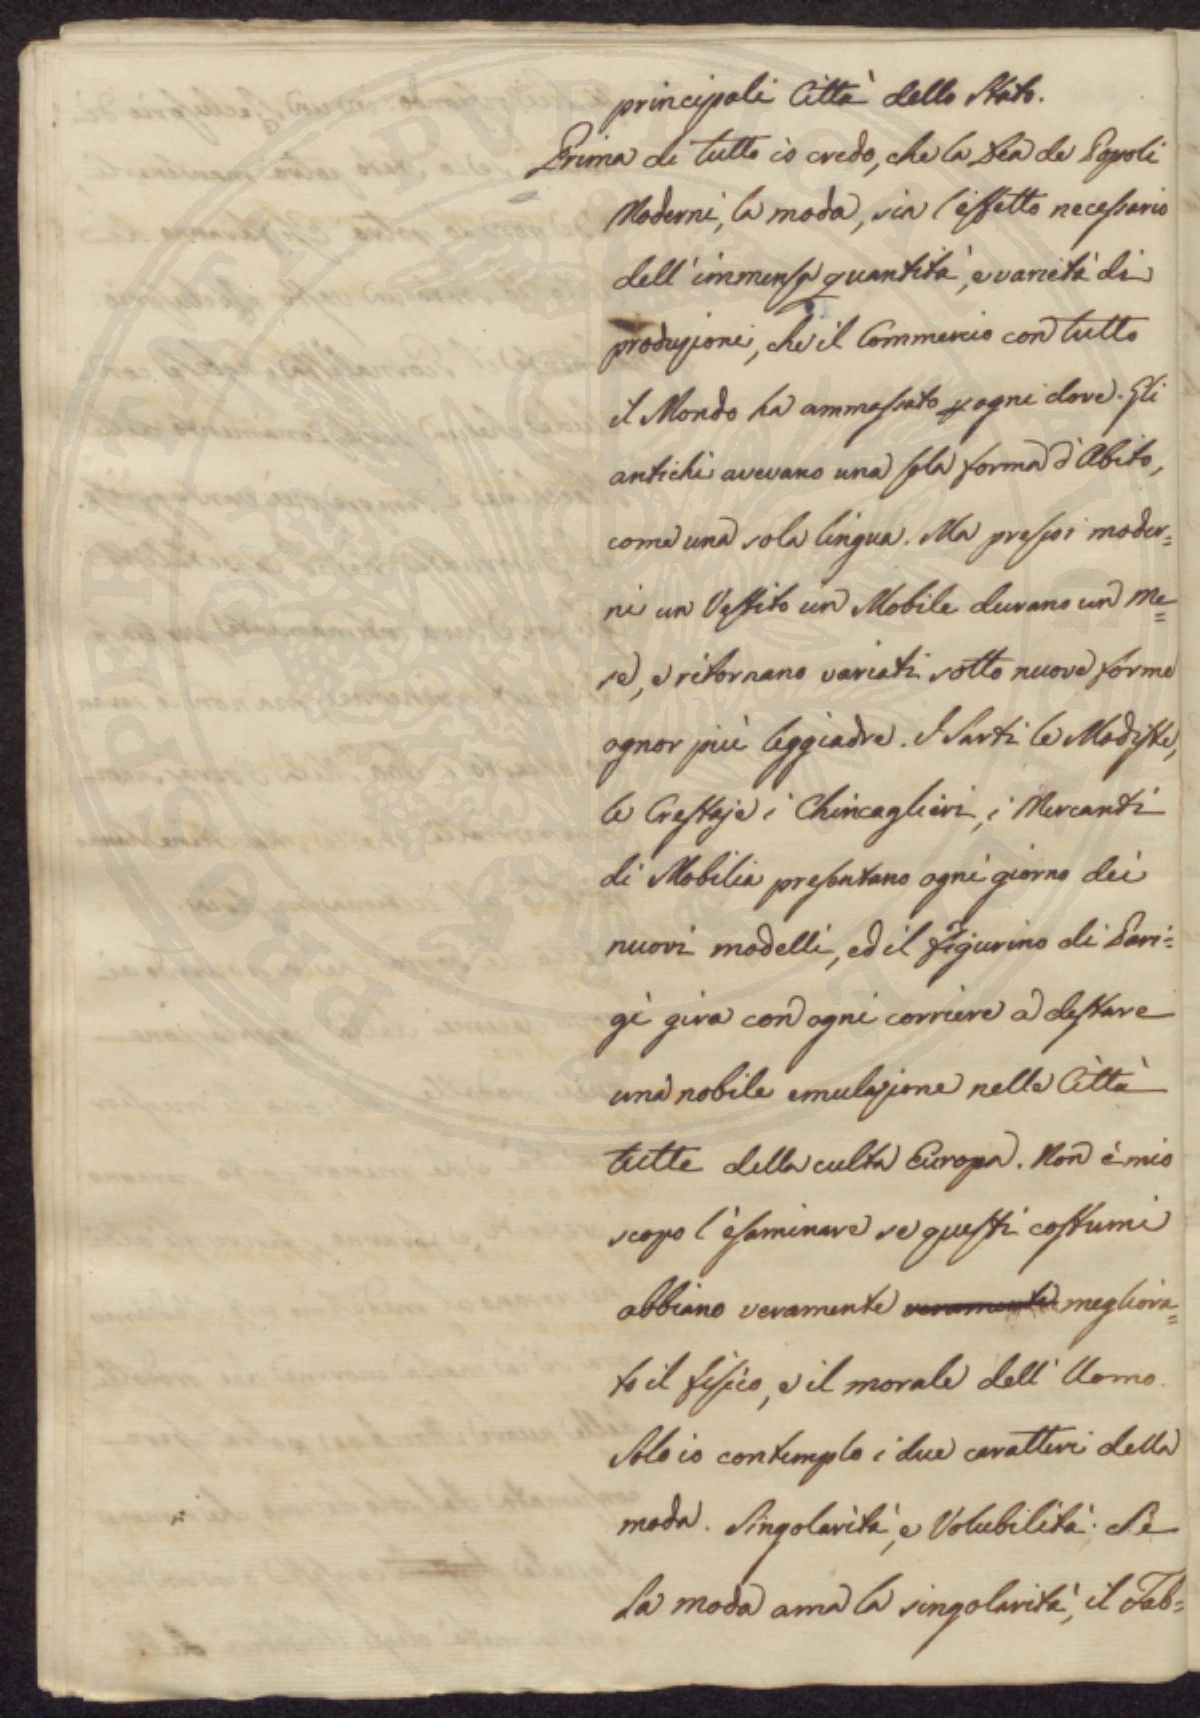 principali Città dello Stato.
Prima di tutto io credo, che la Dea de Popoli
Moderni, la moda, sia l'effetto necessario
dell'immensa quantità, e varietà di
produzioni, che il Commercio con tutto
il Mondo ha ammassato p ogni dove. Gli
antichi avevano una sola forma d'Abito,
come una sola lingua. Ma presso i moder=
ni un Vestito un Mobile durano un me=
se, e ritornano variati sotto nuove forme
ognor più leggiadre. I Sarti le Modiste,
le Crestaje i Chincaglieri, i Mercanti
di Mobilia presentano ogni giorno dei
nuovi modelli, ed il figurino di Pari=
gi gira con ogni corriere a destare
una nobile emulazione nelle Città
tutte della culta Europa. Non è mio
scopo l'esaminare se questi costumi
abbiano veramente veramente megliora=
to il fisico, e il morale dell'Uomo.
Solo io contemplo i due caratteri della
moda. Singolarità, e Volubilità. Se
la moda ama la singolarità, il Fab=
PROSPERITATI PUBLICAE